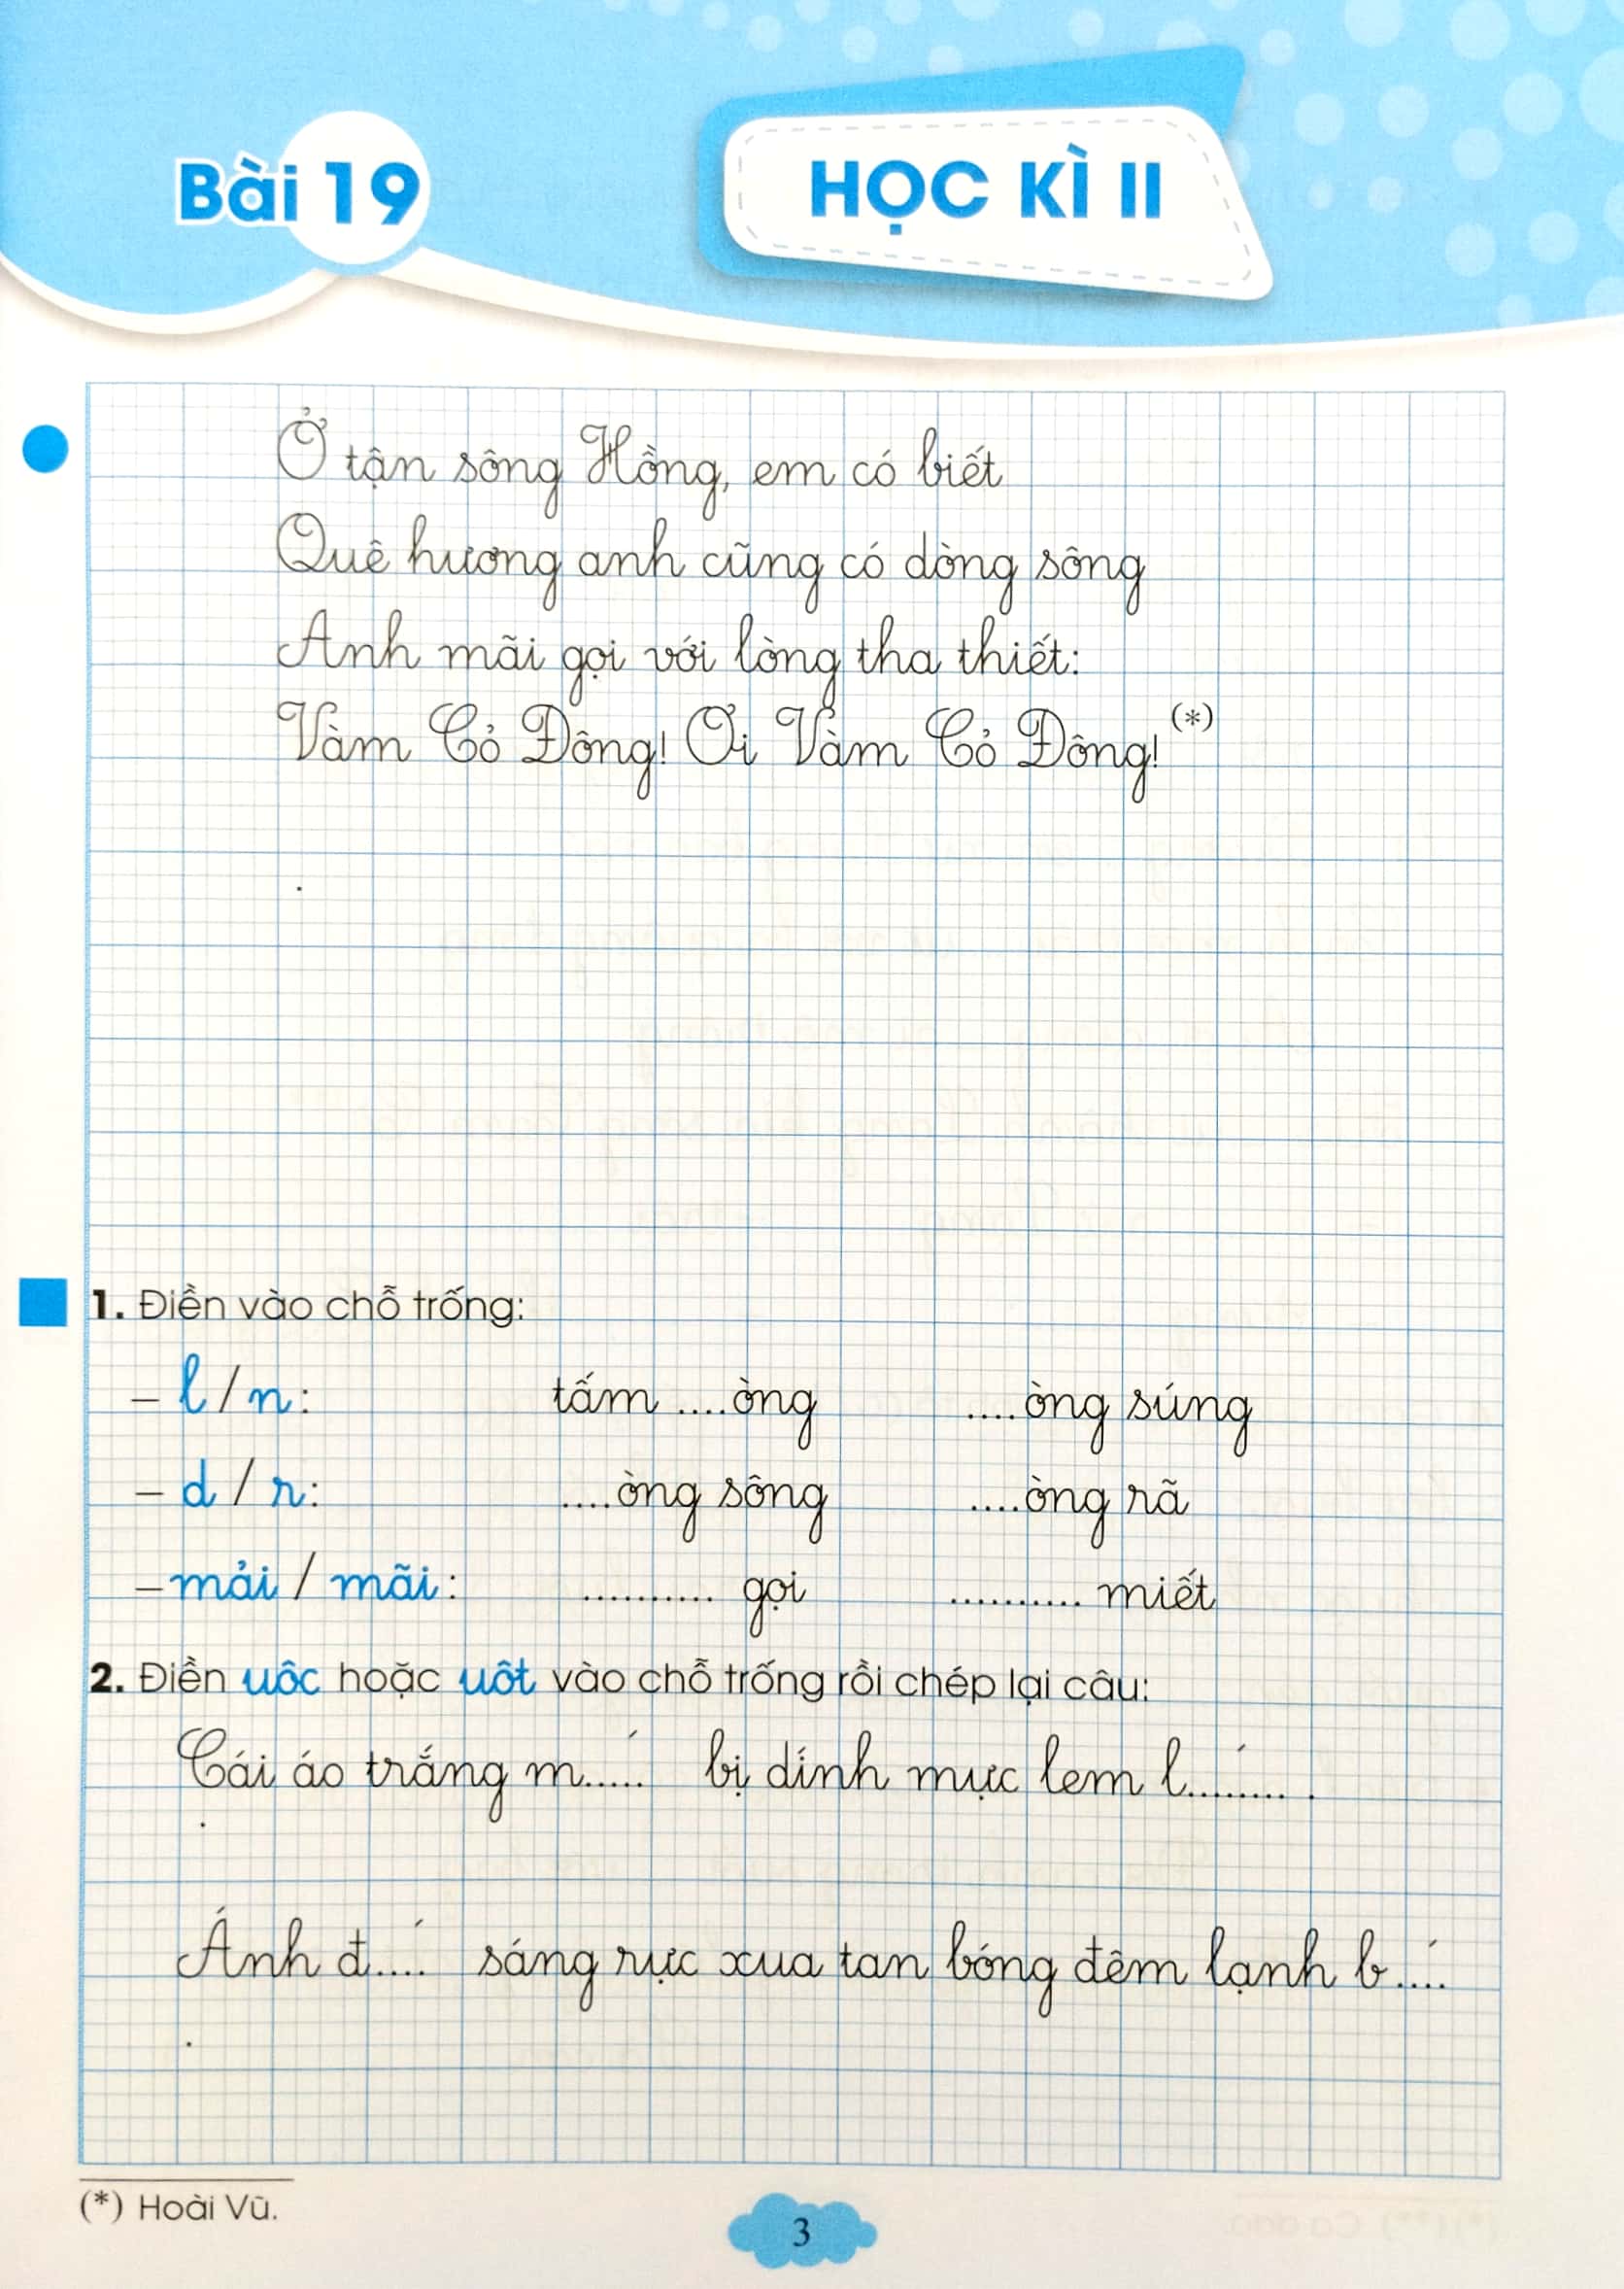 Bài 19
HỌC KÌ II
Ở tận sông Hồng, em có biết
Quê hương anh cũng có dòng sông
Anh mãi gọi với lòng tha thiết:
Vàm Cỏ Đông! Ơi Vàm Cỏ Đông! (*)
1. Điền vào chỗ trống:
– l / n: tấm ....òng ....òng súng
– d / r: ....òng sông ....òng rã
– mải / mãi: ........... gọi ........... miết
2. Điền uôc hoặc uôt vào chỗ trống rồi chép lại câu:
Cái áo trắng m.....́ bị dính mực lem l........́ .
Ánh đ....́ sáng rực xua tan bóng đêm lạnh b....́
(*) Hoài Vũ.
3